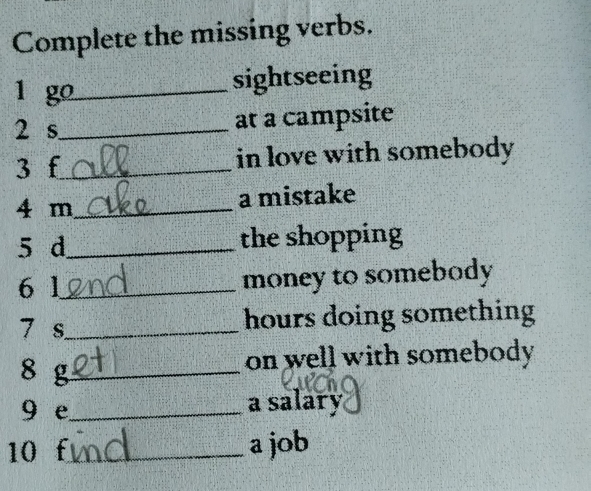 Complete the missing verbs.
1 go__________ sightseeing
2 s__________ at a campsite
3 fall in love with somebody
4 make a mistake
5 d__________ the shopping
6 lend money to somebody
7 s__________ hours doing something
8 get on well with somebody
9 e__________ a salary
10 find a job